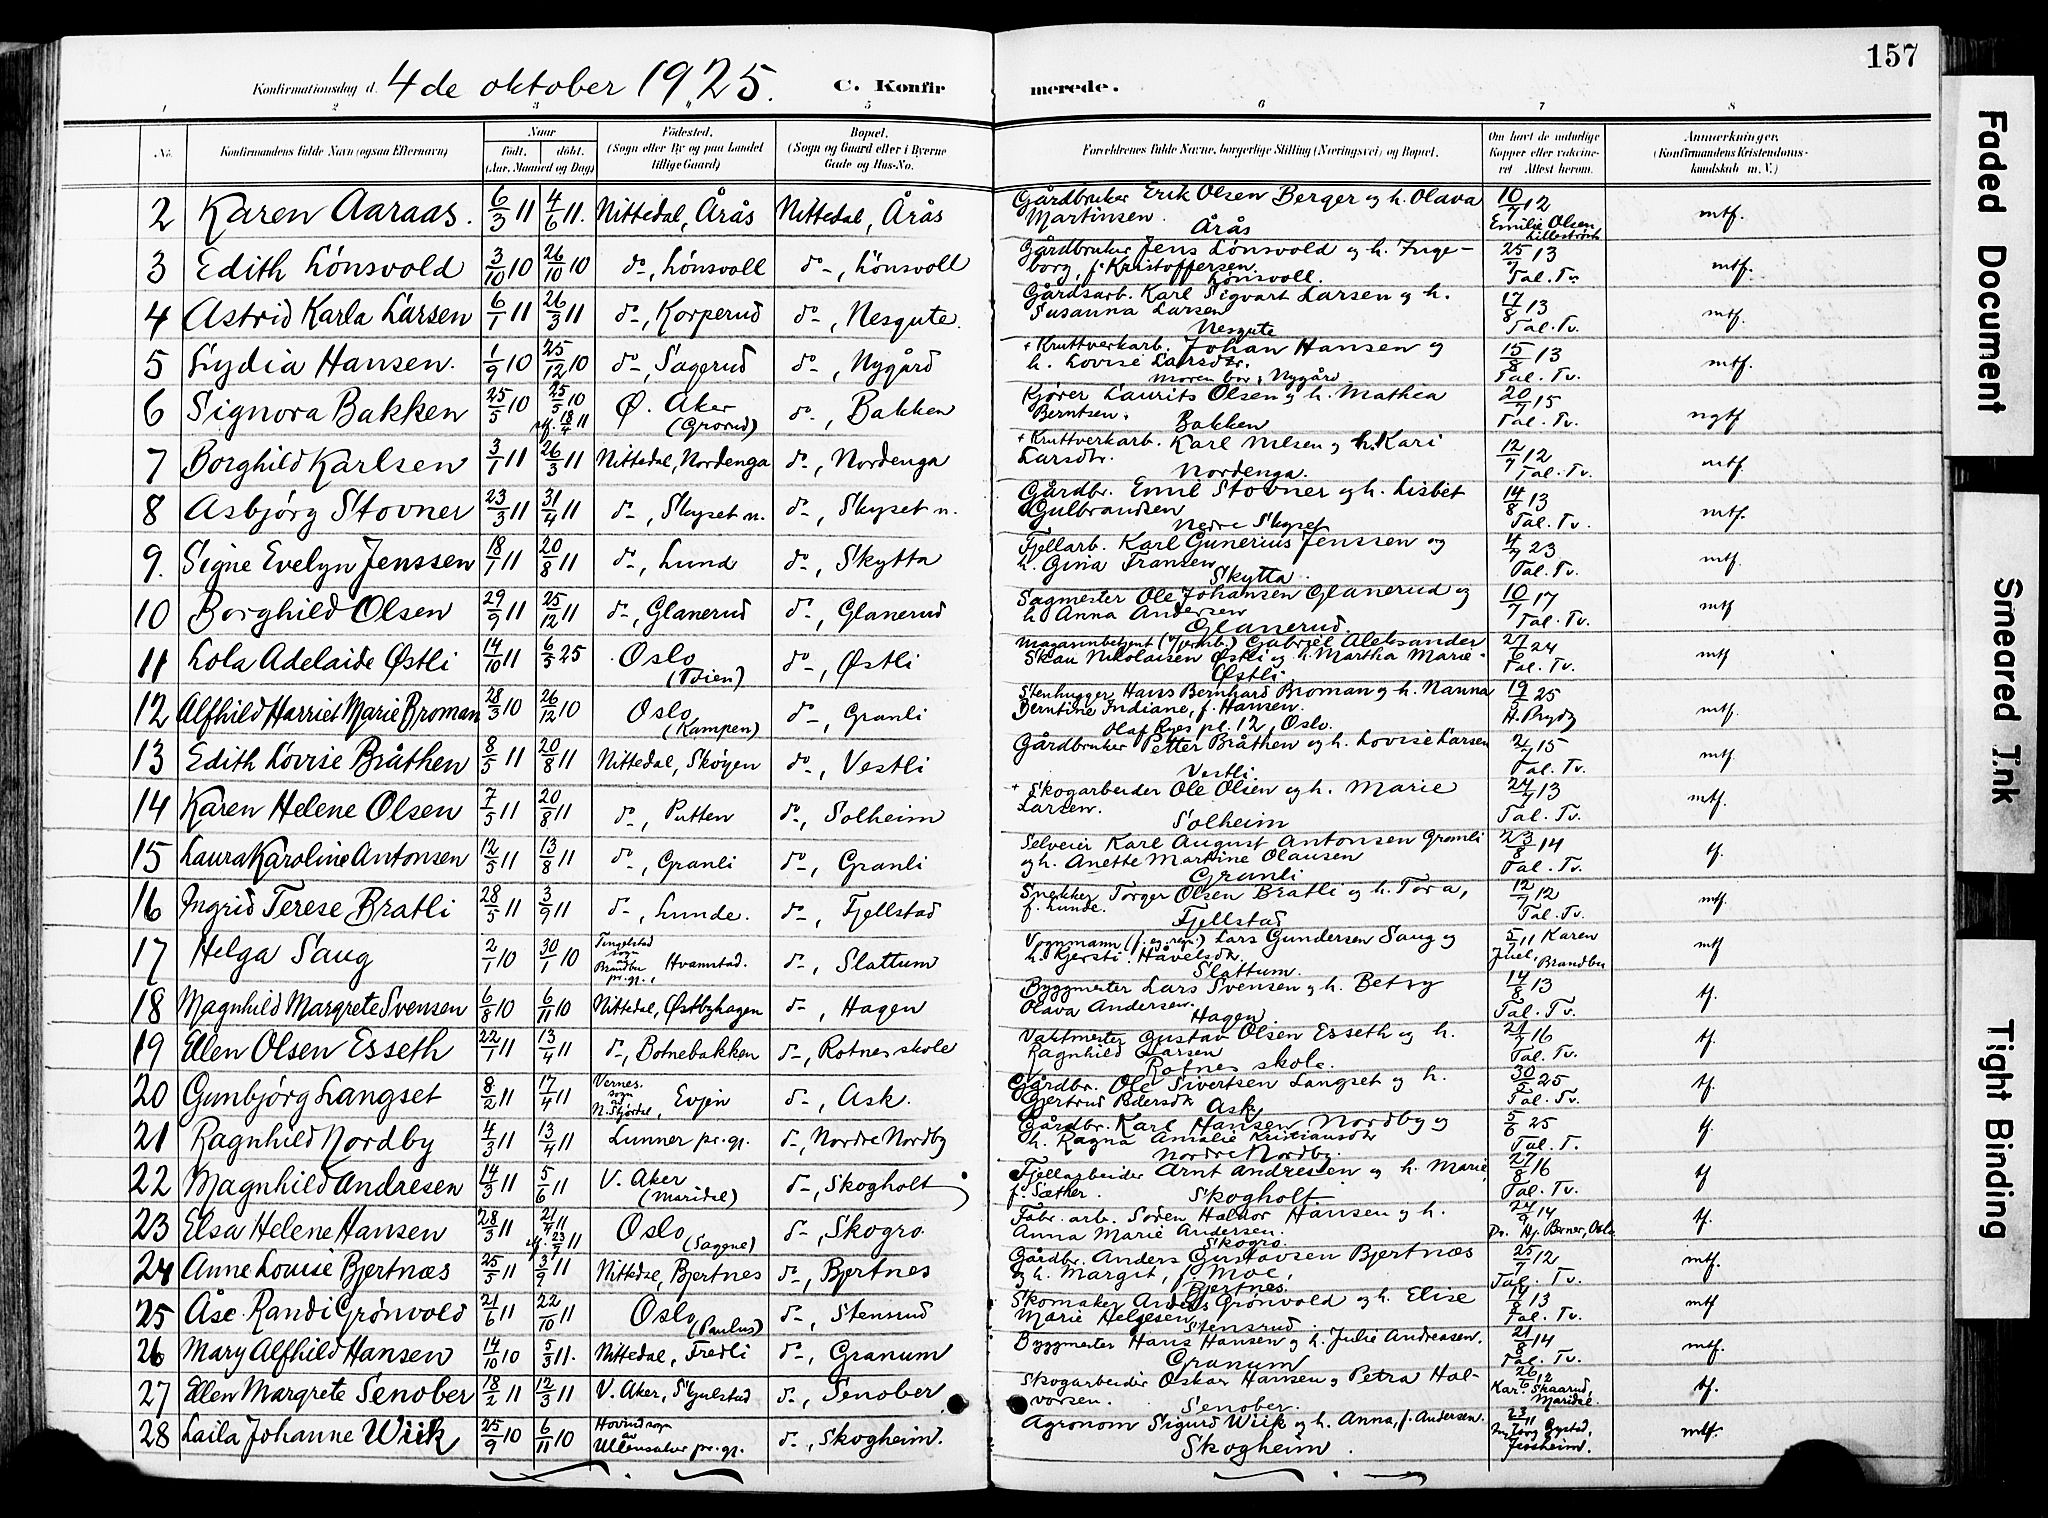 157
Konfirmationsdag d. 4 de oktober 1925. C. Konfirmerede.
1 2 3 5 6 7 8
No. Konfirmandens fulde Navn (ogsaa Efternavn) Naar født, døbt. (Aar, Maaned og Dag) Fødested. (Sogn eller By og paa Landet tillige Gaard) Bopæl. (Sogn og Gaard eller i Byerne Gade og Hus-No. Forældrenes fulde Navne, borgerlige Stilling (Næringsvei) og Bopæl. Om havt de naturlige Kopper eller vakcineret Attest herom. Anmerkninger. (Konfirmandens Kristendomskundskab m. V.)
2 Karen Aaraas. 6/3 11 4/6 11. Nittedal, Årås Nittedal, Årås Gårdbruker Erik Olsen Berger og h. Olava Martinsen. Årås 10/7 12 Emilie Olsen Lillestrøm mtf.
3 Edith Lönsvold 3/10 10 26/10 10 do, Lönsvoll do, Lönsvoll Gårdbruker Jens Lönsvold og h. Ingeborg, f. Kristoffersen. Lönsvoll. 25/7 13 Tal. Tv. mtf.
4 Astrid Karla Larsen 6/1 11 26/3 11 do, Korperud do, Nesgute. Gårdsarb. Karl Sigvart Larsen og h. Susanna Larsen Nesgute 17/8 13 Tal. Tv. mtf.
5 Lydia Hansen. 1/9 10 25/12 10 do, Sagerud do, Nygård + Kruttverkarb. Johan Hansen og h. Lovise Larsdtr. Moren bor, Nygård 15/8 13 Tal. Tv. mtf.
6 Signora Bakken 25/5 10 25/5 10 stf. 18/4 11 Ø. Aker (Grorud) do, Bakken Kjører Laurits Olsen og h. Mathea Berntsen. Bakken 20/7 15 Tal. Tv. ngtf
7 Borghild Karlsen 3/1 11 26/3 11 Nittedal, Nordenga do, Nordenga + Kruttverkarb. Karl Nilsen og h. Kari Larsdtr. Nordenga. 12/7 12 Tal. Tv. mtf
8 Asbjörg Stovner 23/3 11 31/4 11 do, Skyset n. do, Skyset n. Gårdbr. Emil Stovner og h. Lisbet Gulbrandsen Nedre Skyset 14/8 13 Tal. Tv. mtf.
9. Signe Evelyn Jenssen 18/1 11 20/8 11 do, Lund do, Skytta Fjellarb. Karl Gunerius Jenssen og h. Gina Fransen Skytta. 4/7 23 Tal. Tv. mtf.
10 Borghild Olsen 29/9 11 25/12 11 do, Glanerud do, Glanerud Sagmester Ole Johansen Glanerud og h. Anna Andersen Glanerud. 10/7 17 Tal. Tv. mtf
11 Lola Adelaide Østli 14/10 11 6/5 25 Oslo (Bien) do, Østli Magasinbetjent Gabriel Aleksander Skau Nikolaisen Østli og h. Martha Marie Østli 27/6 24 Tal. Tv. mtf
12 Alfhild Harriet Marie Broman 28/3 10 26/12 10 Oslo (Kampen) do, Granli Stenhugger Hans Bernhard Broman og h. Nanna Berntine Indiane, f. Hansen. Olaf Ryes pl. 12, Oslo. 19/5 25 H. Prydz mtf.
13 Edith Lovise Bråthen 8/5 11 20/8 11 Nittedal, Skøyen do, Vestli Gårdbruker Petter Bråthen og h. Lovise Larsen Vestli. 2/7 15 Tal. Tv. mtf.
14 Karen Helene Olsen 7/5 11 20/8 11 do, Putten do, Solheim + Skogarbeider Ole Olsen og h. Marie Larsen. Solheim 24/7 13 Tal. Tv. mtf.
15 Laura Karoline Antonsen 12/5 11 13/8 11 do, Granli do, Granli Selveier Karl August Antonsen Granli og h. Anette Martine Olausen Granli 23/8 14 Tal. Tv. tf.
16 Ingrid Terese Bratli 28/5 11 3/9 11 do, Lunde. do, Fjellstad Snekker Torger Olsen Bratli og h. Tora, f. Lunde. Fjellstad 12/7 12 Tal. Tv. mtf.
17 Helga Saug 2/1 10 30/1 10 Tingelstad sogn av Brandbu pr.gj. Hvamstad. do, Slattum Vognmann Lars Gundersen Saug og h. Kjersti Håvelsdtr. Slattum. 5/7 11 Karen Juel, Brandbu mtf
18 Magnhild Margrete Svensen 6/8 10 6/11 10 Nittedal, Østbyhagen do, Hagen Byggmester Lars Svensen og h. Betsy Olava Andersen. Hagen 14/8 13 Tal. Tv. tf.
19 Ellen Olsen Esseth 22/1 11 13/4 11 do, Botnebakken do, Rotnes skole Vaktmester Gustav Olsen Esseth og h. Ragnhild Larsen Rotnes skole. 21/7 16 Tal. Tv. tf.
20 Gunbjörg Langset 8/2 11 17/4 11 Vernes sogn av N. Stjørdal, Evjen do, Ask. Gårdbr. Ole Sivertsen Langset og h. Gjertrud Pedersdtr. Ask 30/5 25 Tal. Tv. tf.
21 Ragnhild Nordby 4/3 11 13/4 11 Lunner pr.gj. do, Nordre Nordby Gårdbr. Karl Hansen Nordby og h. Ragna Amalie Kristiansdtr Nordre Nordby. 5/6 25 Tal. T. tf.
22 Magnhild Andresen 14/3 11 5/6 11 V. Aker (Maridal) do, Skogholt Fjellarbeider Arnt Andresen og h. Marie, f. Sæther. Skogholt 27/8 16 Tal. Tv. tf
23 Elsa Helene Hansen 28/3 11 21/4 11 stf. 23/7 11 Oslo (Sagene) do, Skogro. Fabr. arb. Soren Halvor Hansen og h. Anna Marie Andersen. Skogro. 24/9 14 Dr. Hj. Berner, Oslo tf.
24 Anne Louise Bjertnæs 25/5 11 3/9 11 Nittedal, Bjertnes do, Bjertnes Gårdbr. Anders Gustavsen Bjertnæs og h. Margit, f. Moe, Bjertnes. 25/7 12 Tal. Tv. mtf.
25 Åse Randi Grönvold 21/6 11 22/10 11 Oslo (Paulus) do, Stensrud Skomaker Anders Grönvold og h. Elise Marie Helgesen Stensrud. 14/8 13 Tal. Tv. mtf
26 Mary Alfhild Hansen 14/10 10 5/3 11. Nittedal, Fredli do, Granum Byggmester Hans Hansen og h. Julie Andreasen. Granum 21/8 14 Tal. Tv. mtf.
27 Ellen Margrete Senober 18/2 11 12/3 11 V. Aker, Skjulstad do, Senober Skogarbeider Oskar Hansen og Petra Halvorsen. Senober. 26/6 12 Kar. Skaarud, Maridal. tf.
28 Laila Johanne Wiik 25/9 10 6/11 10 Hovind sogn av Ullensaker pr.gj. do, Skogheim. Agronom Sigurd Wiik og h. Anna, f. Andersen. Skogheim. 23/7 11 Ingeborg Gystad, Jessheim. mtf.
Faded Document
Smeared Ink
Tight Binding